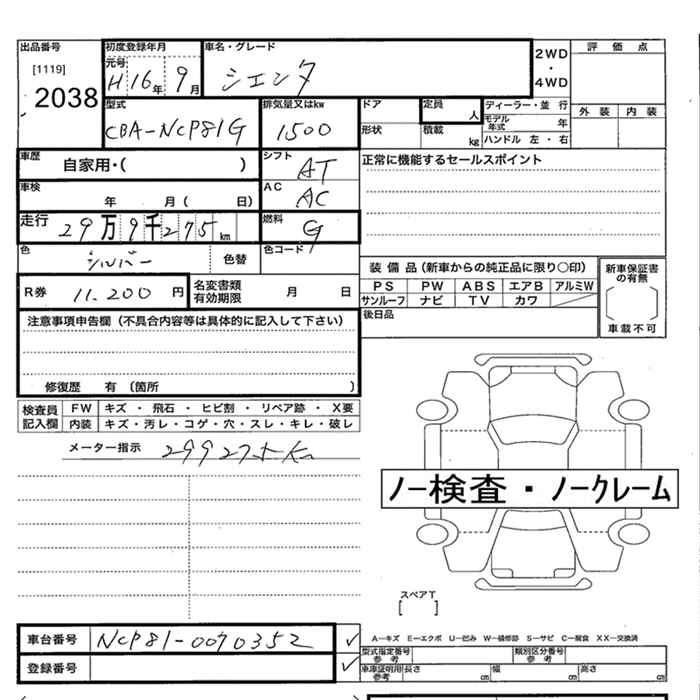 出品番号 初度登録年月 車名・グレード 2WD ・ 4WD 評価点
[1119] 元号 H16年 9月 シエンタ
2038 外装 内装
型式 CBA-NCP81G 排気量又はkw 1500 ドア 定員 人 ディーラー・並行
形状 積載 kg モデル年式 年
ハンドル 左・右
車歴 自家用・( ) シフト AT 正常に機能するセールスポイント
車検 年 月( 日) AC AC
走行 29万9千275km 燃料 G
色 シルバー 色替 色コード
装備品(新車からの純正品に限り○印) 新車保証書の有無
R券 11.200円 名変書類有効期限 月 日 PS PW ABS エアB アルミW
サンルーフ ナビ TV カワ 車載不可
注意事項申告欄(不具合内容等は具体的に記入して下さい) 後日品
修復歴 有(箇所 )
検査員記入欄 FW キズ・飛石・ヒビ割・リペア跡・X要
内装 キズ・汚レ・コゲ・穴・スレ・キレ・破レ
メーター指示
ノー検査・ノークレーム
スペアT
[ ]
車台番号 NCP81-0070352 ✓ A―キズ E―エクボ U―凹み W―補修跡 S―サビ C―腐食 XX―交換済
型式指定番号 参考 類別区分番号 参考
登録番号 ✓ 車庫証明用 参考 長さ cm 幅 cm 高さ cm